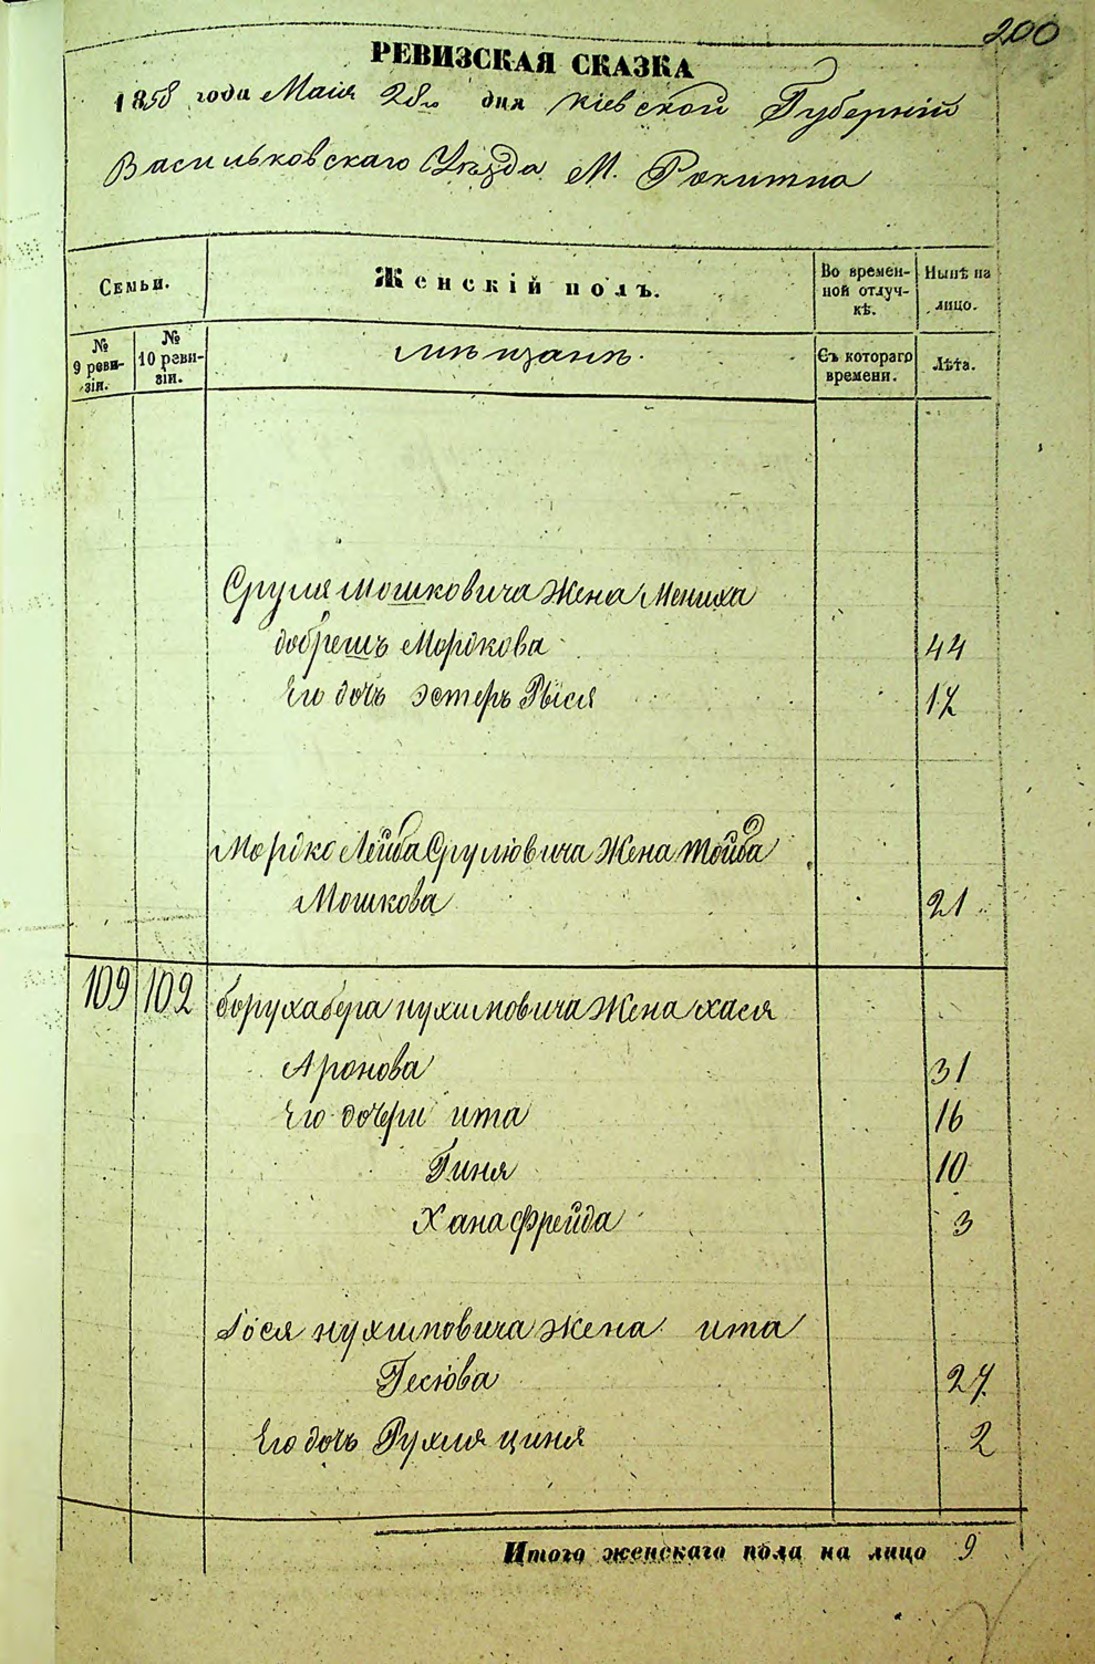 200
РЕВИЗСКАЯ СКАЗКА
1858 года Маія 28го дня Кіевской Губерніи
Васильковскаго Уѣзда М. Рокитна
Семьи.
Женскій полъ.
Во времен-
ной отлуч-
кѣ.
Нынѣ на
лицо.
№
9 реви-
зіи.
№
10 реви-
зіи.
мѣщанѣ.
Съ котораго
времени.
Лѣта.
Сруля Мошковича Жена Мениха
добрешъ Мордкова 44
Его дочь Эстеръ Рыся 17
Мордко Лейба Срулювича Жена Тойба
Мошкова 21
109 102 боруха бера нухимовича Жена хася
Аронова 31
Его дочери ита 16
Гиня 10
Хана фрейда 3
Іося нухимовича жена ита
Гесюва 27
Его дочь Рухля циня 2
Итого женскаго пола на лицо 9